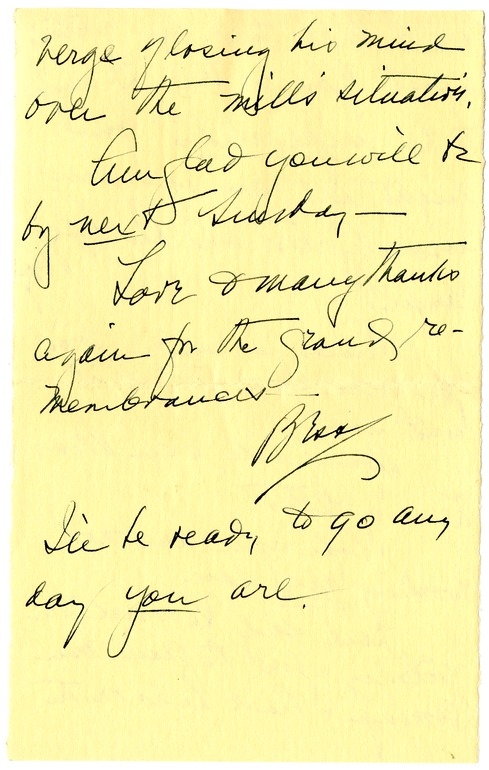 verge of losing his mind
over the mill's situation.
Am glad you will be
by next Sunday —
Love & many thanks
again for the grand re-
membrances —
Bess
I'll be ready to go any
day you are.